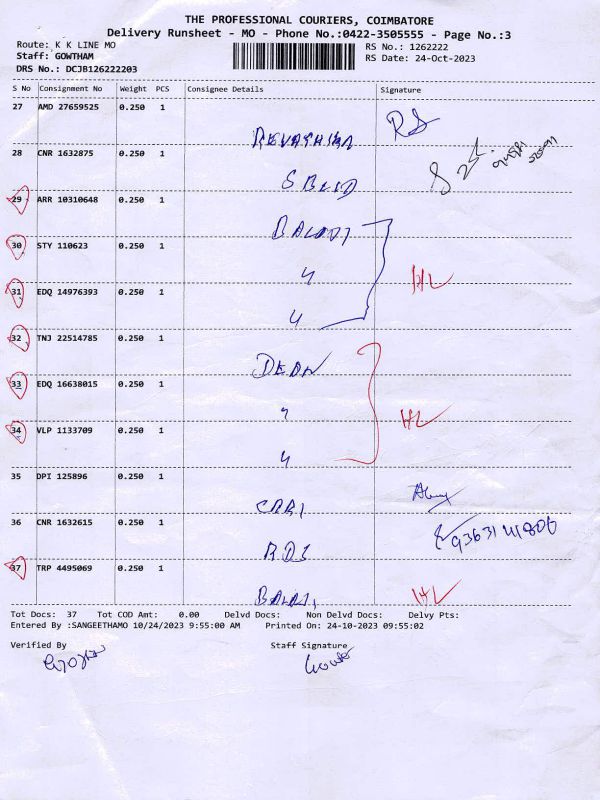 THE PROFESSIONAL COURIERS, COIMBATORE
Delivery Runsheet - MO - Phone No.:0422-3505555 - Page No.:3
Route: K K LINE MO RS No.: 1262222
Staff: GOWTHAM RS Date: 24-Oct-2023
DRS No.: DCJB126222203
S No Consignment No Weight PCS Consignee Details Signature
27 AMD 27659525 0.250 1
RS
28 CNR 1632875 0.250 1
29 ARR 10310648 0.250 1
30 STY 110623 0.250 1
31 EDQ 14976393 0.250 1
HL
32 TNJ 22514785 0.250 1
DEAN
33 EDQ 16638015 0.250 1
34 VLP 1133709 0.250 1
HL
35 DPI 125896 0.250 1
36 CNR 1632615 0.250 1
37 TRP 4495069 0.250 1
BALAJI HL
Tot Docs: 37 Tot COD Amt: 0.00 Delvd Docs: Non Delvd Docs: Delvy Pts:
Entered By :SANGEETHAMO 10/24/2023 9:55:00 AM Printed On: 24-10-2023 09:55:02
Verified By Staff Signature